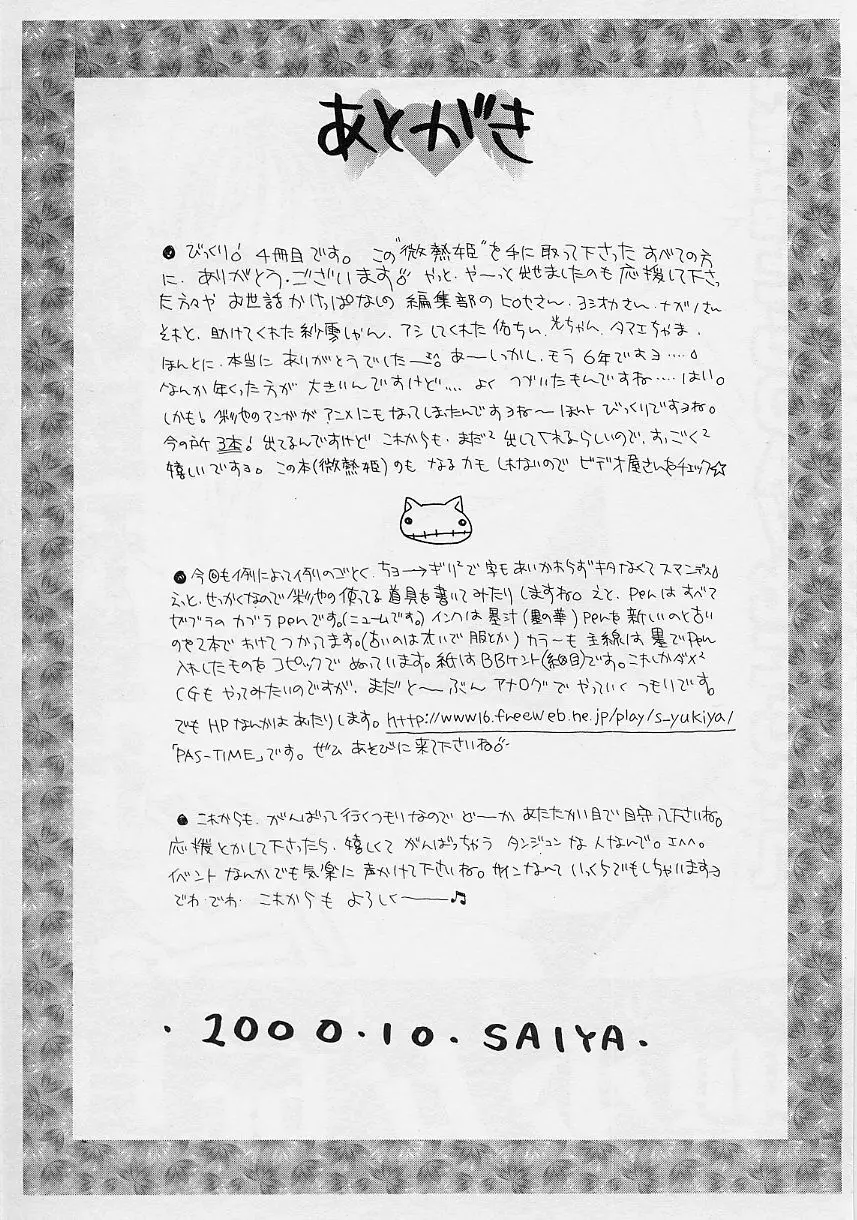 あとがき
● びっくり! 4冊目です。 この"微熱姫"を手に取って下さった すべての方
に、ありがとう・ございます!! やっと、や〜っと 出せましたのも 応援して下さっ
た方々や お世話かけっぱなしの 編集部のヒロセさん、ヨシオカさん、ナガノさん
それと、助けてくれた紗雪しゃん、アシしてくれた佑ちん、光ちゃん、タマエちゃま、
ほんとに、本当に ありがとうでした—— あ—しっかし、もう 6年ですョ····。
なんか 年くった方が 大きいんですけど···· よく つづいたもんですね···· はい。
しかも! 彩也のマンガが アニメにもなってしまったんですョね〜 ほント びっくりですョね。
今の所 3本! 出てるんですけど これからも、まだ² 出してくれるらしいので、すっごく²
嬉しいですョ。 この本(微熱姫)のも なるかも しれないので ビデオ屋さんをチェック☆
● 今回も例によって例のごとく、ちョ—→ギリ²で 字も あいかわらずキタなくて スマンデス
えっと、せっかくなので 彩也の使ってる道具を書いてみたり しますね。 えと、Penは すべて
ゼブラの カブラpenです。(ニュームです。) インクは 墨汁(墨の華) Penを 新しいのと古い
のをで2本で わけてつかってます。(古いのは太いで 服とか) カラーも 主線は 墨でPen
入れしたものをコピックで ぬっています。紙はBBケント(細目)です。これしかダメ²
CGもやってみたいのですが、まだ と〜ぶん アナログで やっていく つもりです。
でも HPなんかは あったりします。 http://www16.freeweb.ne.jp/play/s-yukiya/
「PAS-TIME」です。 ぜひ あそびに来て下さいね
● これからも、がんばって行くつもりなので ど—か あたたかい目で見守って下さいね。
応援とかして下さったら、嬉しくて がんばっちゃう タンジュン な 人なんで。エヘヘ。
イベントなんかでも気楽に 声かけて下さいね。サインなんて いくらでもしちゃいますョ
でわ・でわ これからも よろしく———♫
・2000・10・SAIYA・